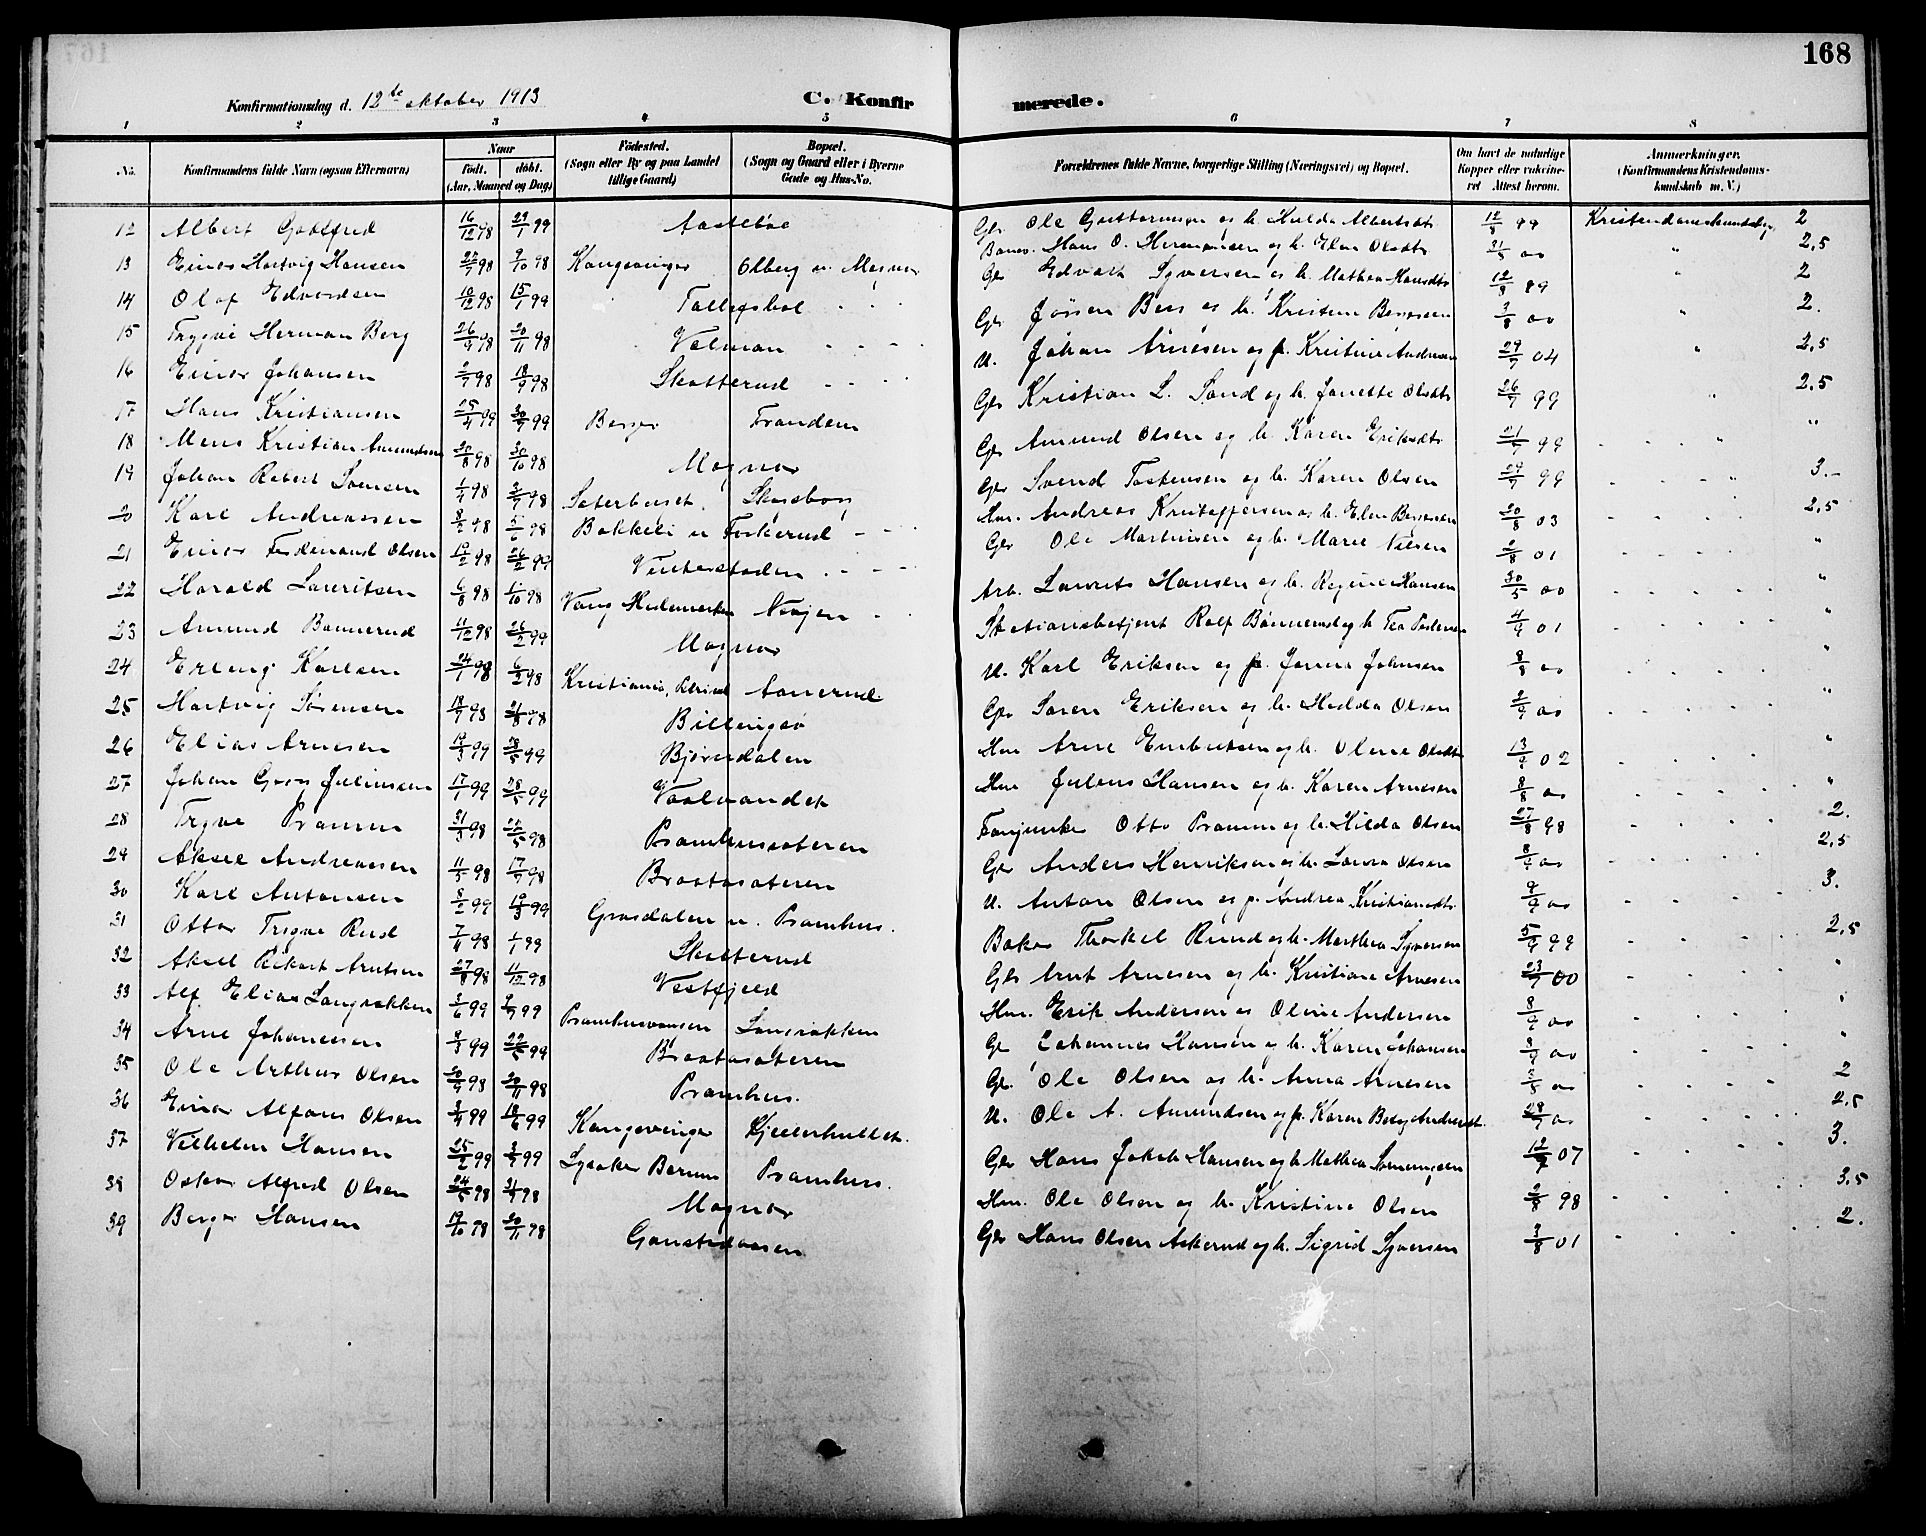 168
Konfirmationsdag d. 12te oktober 1913
C. Konfirmerede.
1 2 3 4 5 6 7 8
No. Konfirmandens fulde Navn (ogsaa Efternavn) Naar født. døbt. (Aar, Maaned og Dag) Fødested. (Sogn eller By og paa Landet tillige Gaard) Bopæl. (Sogn og Gaard eller i Byerne Gade og Hus-No. Forældrenes fulde Navne, borgerlige Stilling (Næringsvei) og Bopæl. Om havt de naturlige Kopper eller vakcineret Attest herom. Anmærkninger. (Konfirmandens Kristendomskundskab m. V.)
12 Albert Gottfred 16/12 98 29/1 99 Gbr Ole Gustavsen og h. Hulda Albertsdt 12/8 99 2
13 Einar Hartvig Hansen 98 9/10 98 Kongsvinger Olberg Hans O. Hermansen og h. Elen Olsdtr 00 " 2,5
14 Olaf Edvardsen 10/12 98 15/1 99 Gbr Edvart Syversen og h. Mathea Hansdtr 12/8 99 " 2
15 Trygve Herman Berg 26/9 98 20/11 98 Gbr Jøssen Berg og h. Kristine 3/8 00 " 2.
16 Einar Johansen 2/7 98 18/9 98 Skotterud U. Johan Arnesen og p. Kristine Andresen 29/7 04 " 2,5
17 Hans Kristiansen 25/4 99 30/7 99 Berger Gbr Kristian L. Sand og h. Janette Olsdtr 26/7 99 " 2,5
18 Mens Kristian Amundsen 30/8 98 30/10 98 Magnor Gbr Amund Olsen og h. Karen Eriksdtr 21/7 99 " "
19 Johan Robert Svensen 1/4 98 3/7 98 Gbr Svend Tostensen og h. Karen Olsen 29/7 99 " 3.
20 Karl Andreassen 98 98 Hm. Andreas Kristoffersen og h. Elen 20/8 03 2,5
21 Einar Ferdinand Olsen 98 26/2 99 Bakkeli Gbr Ole Martinsen og h. Marie Nilsen 2/8 01 "
22 Harald Lauritsen 6/8 98 1/10 98 Vang Hedemarken Arb. Laurits Hansen og h. Regine Hansen 30/5 00 "
23 Amund Bønnerud 11/12 98 26/2 99 Magnor Stationsbetjent Rolf Bønnerud og h. Tea Pedersen 4/9 01 "
24 Erling Karlsen 24/1 98 6/2 98 Kristiania, Aanerud U. Karl Eriksen og p. Janna Johnsen 8/8 00 "
25 Hartvig Sørensen 18/7 98 21/8 98 Gbr Søren Eriksen og h. Hedda Olsen 2/9 00 "
26 Elias Arnesen 19/3 99 28/5 99 Bjørndalen Hm Arne Embretsen og h. Oline Olsdtr 13/9 02 "
27 Johan Georg Juliussen 17/1 99 28/5 99 Vaalmandet Hm Julius Hansen og h. Karen Arnesen 8/8 00 "
28 Trygve Pramm 31/3 98 22/5 98 Pramhussæteren Fanjunker Otto Pramm og h. Hilda Olsen 27/8 98 2.
29 Aksel Andreassen 11/5 98 17/7 98 Braatasæteren Gbr Anders Henriksen og h. Laura Olsen 8/9 00 2,5
30 Karl Antonsen 8/2 99 19/3 99 Grasdalen u. Pramhus. U. Anton Olsen og p. Andrea Kristiansdtr 9/9 00 3.
31 Ottar Trygve Rud 7/11 98 1/1 99 Skotterud Baker Thorkel Ruud og h. Marthea Syversen 5/9 99 2,5
32 Aksel Rikart Arntsen 27/8 98 11/12 98 Vestfjeld Gbr Arnt Arnesen og h. Kristiane Arnesen 23/7 00 "
33 Alf Elias Langrakken 3/6 99 2/7 99 Pramhusvansen Langrakken Hm. Erik Andersen og Oline Andersen 8/9 00 "
34 Arne Johanesen 9/3 99 22/5 99 Braatasæteren Gbr Johannes Hansen og h. Karen Johansen 8/9 00 "
35 Ole Arthur Olsen 30/9 98 20/11 98 Pramhus. Gbr. Ole Olsen og h. Anna Arnesen 00 2
36 Einar Alfons Olsen 3/4 99 18/6 99 Kongsvinger Kjellerhullet. U. Ole A. Amundsen og p. Karen Berg 29/7 00 2,5
37 Vilhelm Hansen 25/2 99 2/7 99 Lysaker Bærum Pramhus. Gbr Hans Jakob Hansen og h. Mathea 07 3.
38 Oskar Alfred Olsen 24/5 98 31/7 98 Magnor Hm. Ole Olsen og h. Kristine Olsen 2/8 98 3.5
39 Berger Hansen 19/10 98 20/11 98 Gbr Hans Olsen Askerud og h. Sigrid Syversen 3/8 01 2.